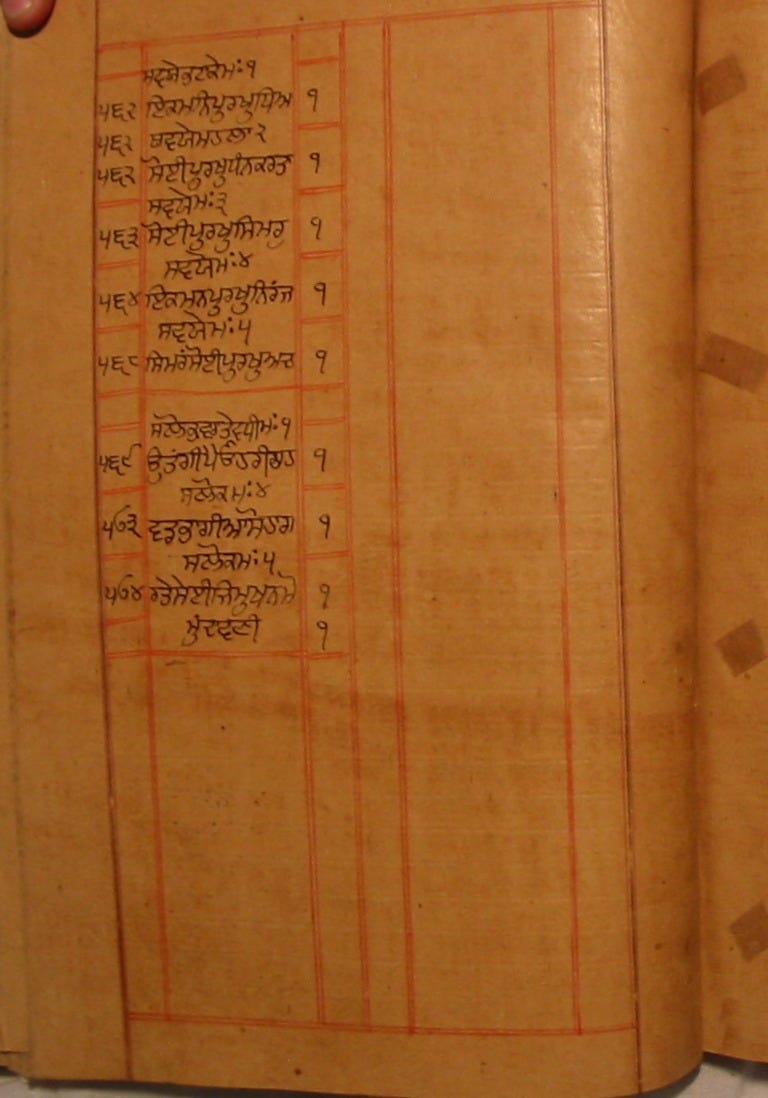 ਸਵਯੇਭਟਕੇਮਃ੧
੫੬੨ ਇਕਮਨਿਪੁਰਖੁਧਿਅ ੧
੫੬੨ ਸਵਯੇਮਹਲਾ੨
੫੬੨ ਸੋਈਪੁਰਖੁਧੰਨਕਰਤਾ ੧
ਸਵਯੇਮਃ੩
੫੬੩ ਸੋਈਪੁਰਖੁਸਿਮਰੁ ੧
ਸਵਯੇਮਃ੪
੫੬੪ ਇਕਮਨਪੁਰਖੁਨਿਰੰਜ ੧
ਸਵਯੇਮਃ੫
੫੬੮ ਸਿਮਰੰਸੋਈਪੁਰਖੁਅਚ ੧
ਸਲੋਕੁਵਾਰਤੇਵਧੀਮਃ੧
੫੬੯ ਉਤੰਗੀਪੈਓਹਰੀਗਹ ੧
ਸਲੋਕਮਃ੪
੫੭੩ ਵਡਭਾਗੀਆਸੋਹਾਗ ੧
ਸਲੋਕਮਃ੫
੫੭੪ ਰਤੇਸੇਈਜਿਮੁਖਨਮੋ ੧
ਮੁੰਦਾਵਣੀ ੧